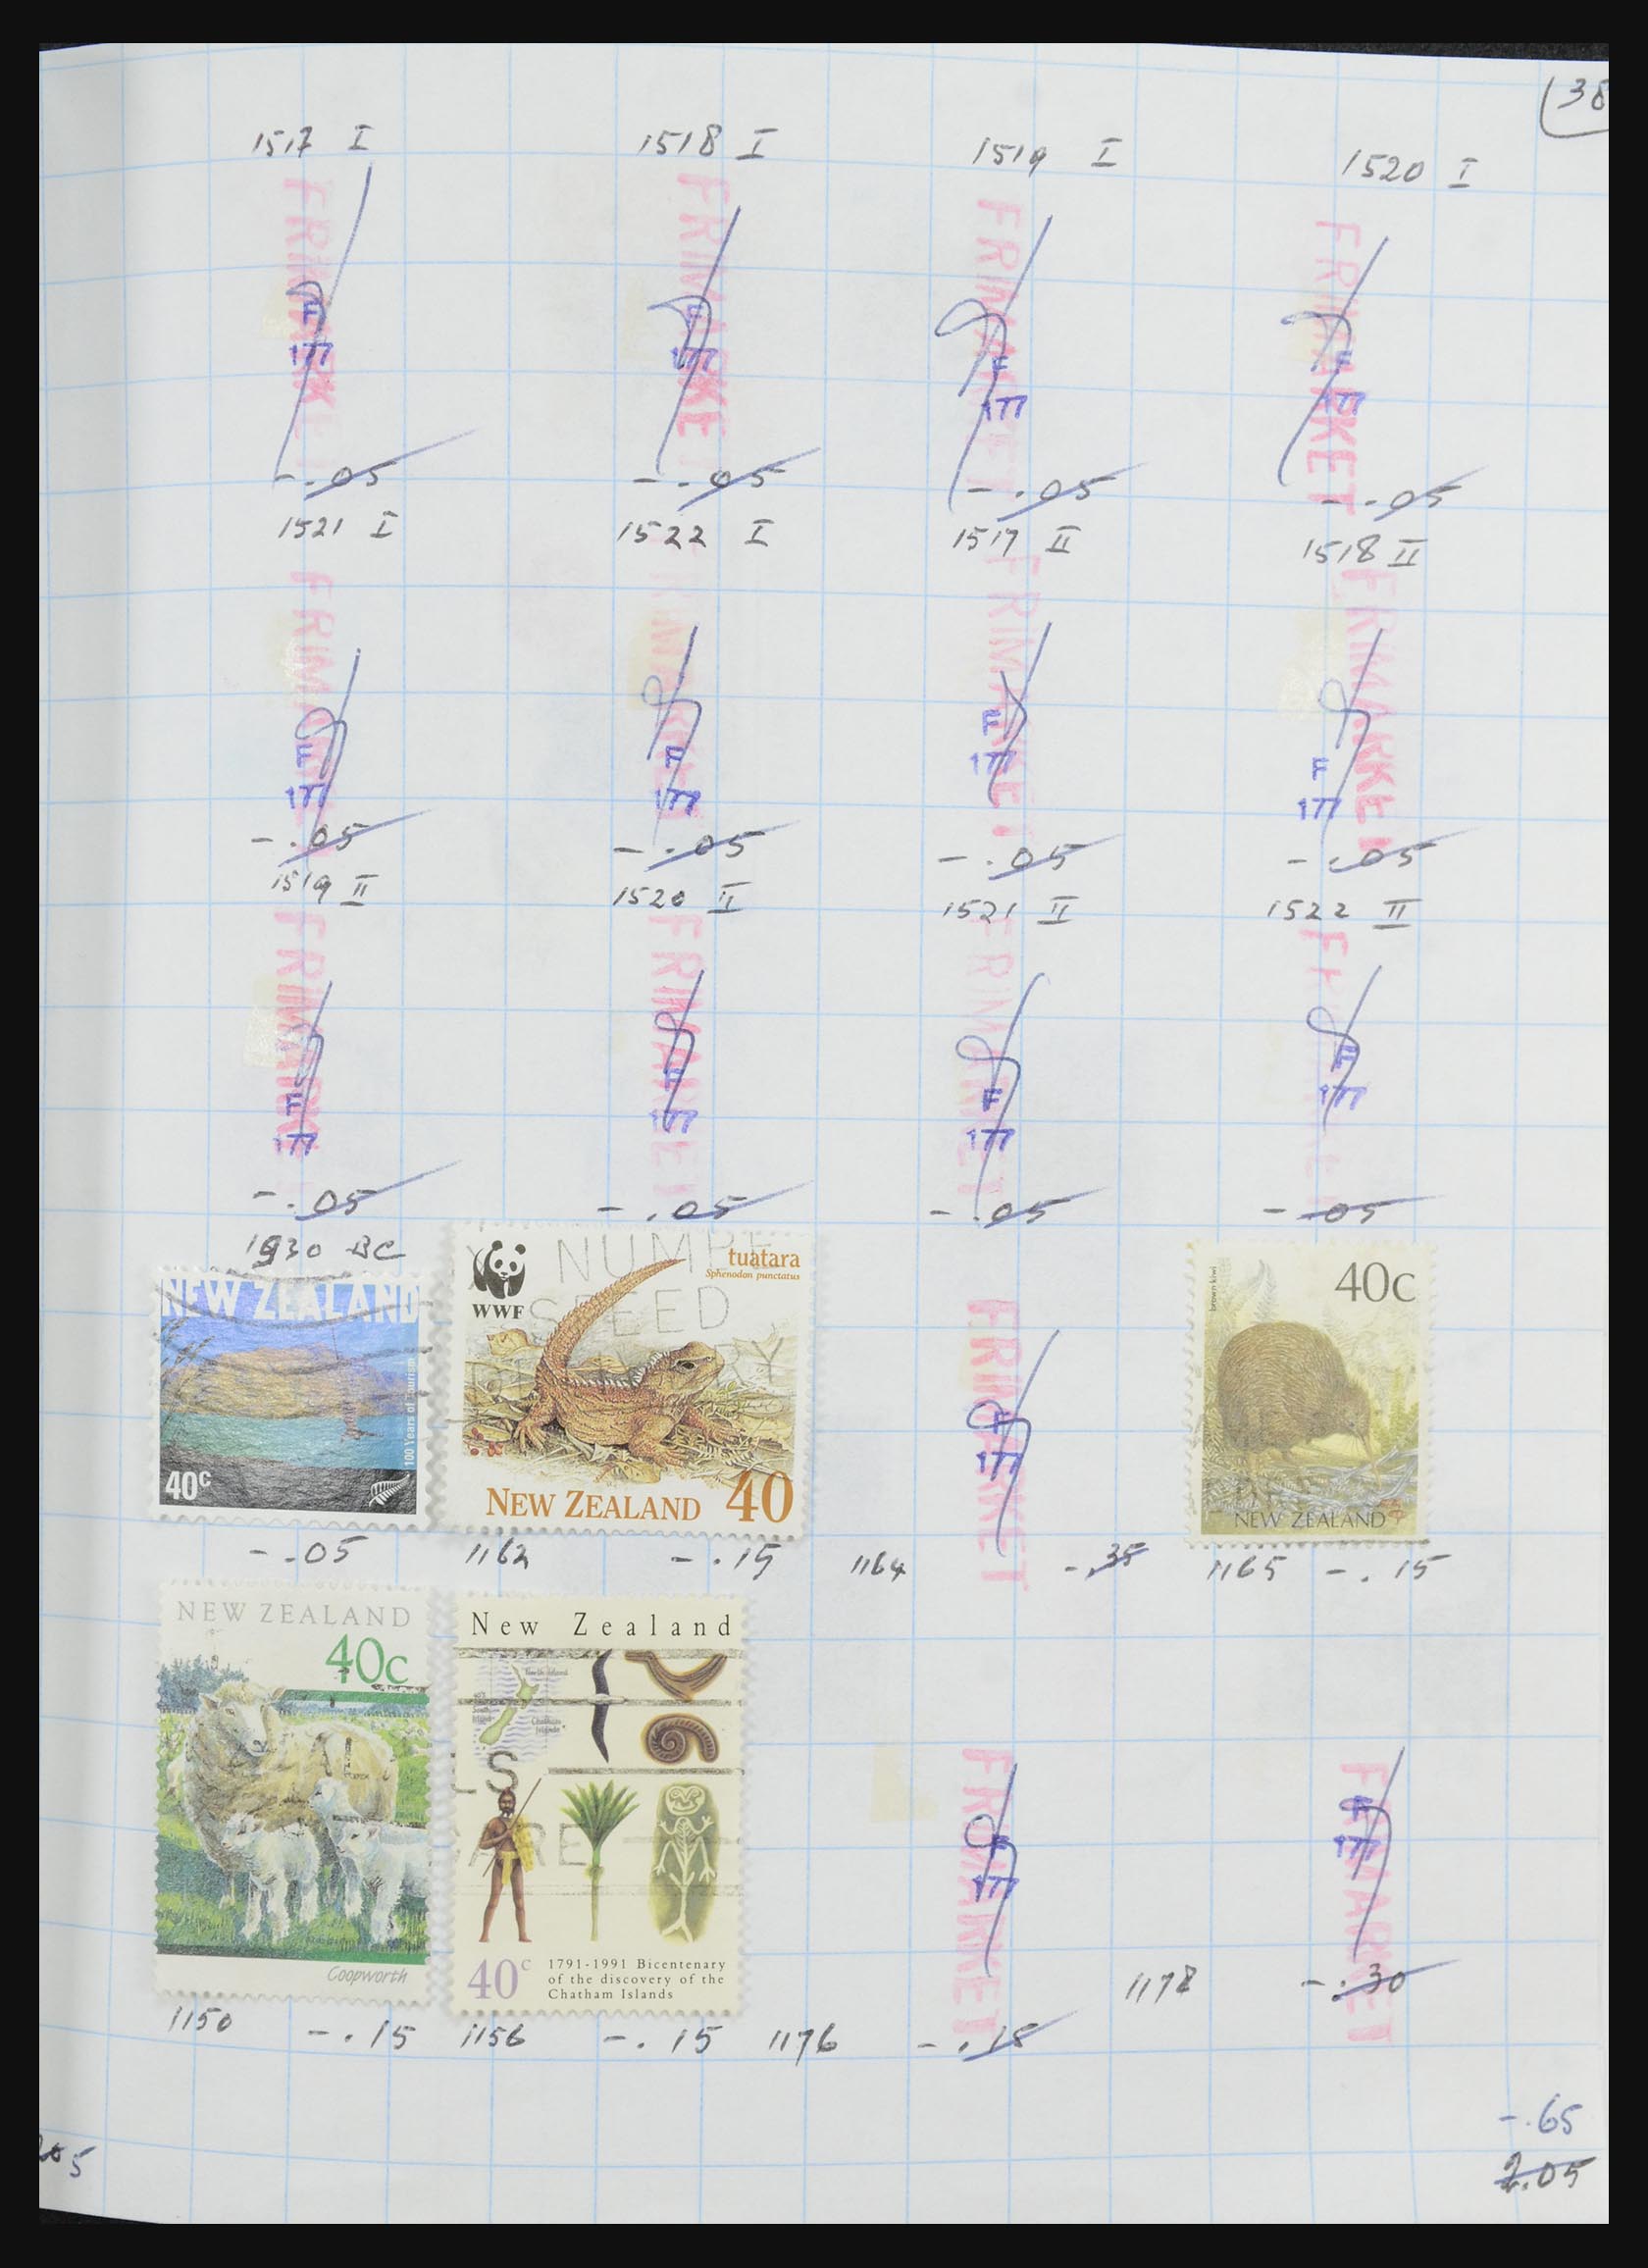 38
1517 I 1518 I 1519 I 1520 I
FRIMARKET FRIMARKET FRIMARKET FRIMARKET
F F F F
177 177 177 177
-.05 -.05 -.05 -.05
1521 I 1522 I 1517 II 1518 II
FRIMARKET FRIMARKET FRIMARKET FRIMARKET
F F F F
177 177 177 177
-.05 -.05 -.05 -.05
1519 II 1520 II 1521 II 1522 II
FRIMARKET FRIMARKET FRIMARKET FRIMARKET
F F F F
177 177 177 177
-.05 -.05 -.05 -05
1930 BC
NEW ZEALAND
100 Years of Tourism
40c
WWF
tuatara
Sphenodon punctatus
NUMBE
SPEED
NEW ZEALAND 40
FRIMARKET
F
177
brown kiwi
40c
NEW ZEALAND
-.05 1162 -.15 1164 -.35 1165 -.15
NEW ZEALAND
40c
Coopworth
New Zealand
North Island
South Island
Chatham Islands
40c
1791-1991 Bicentenary
of the discovery of the
Chatham Islands
FRIMARKET
F
177
FRIMARKET
F
177
1178 -.30
1150 -.15 1156 -.15 1176 -.15
-.65
2.05